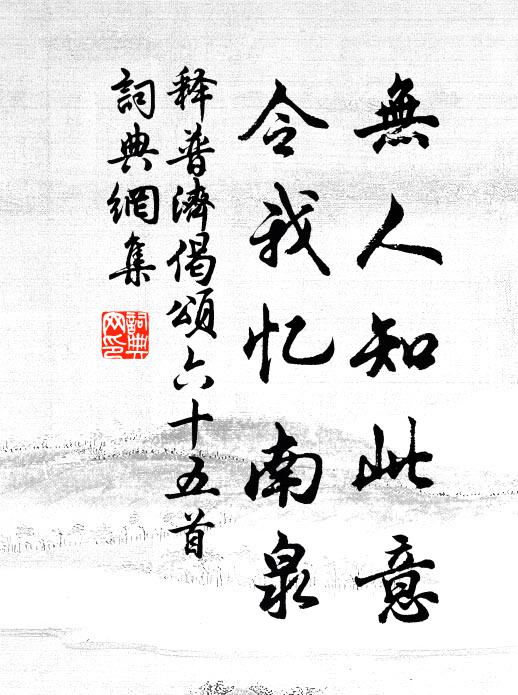 無人知此意
令我忆南泉
释普濟偈頌六十五首
詞典網集
詞典網印